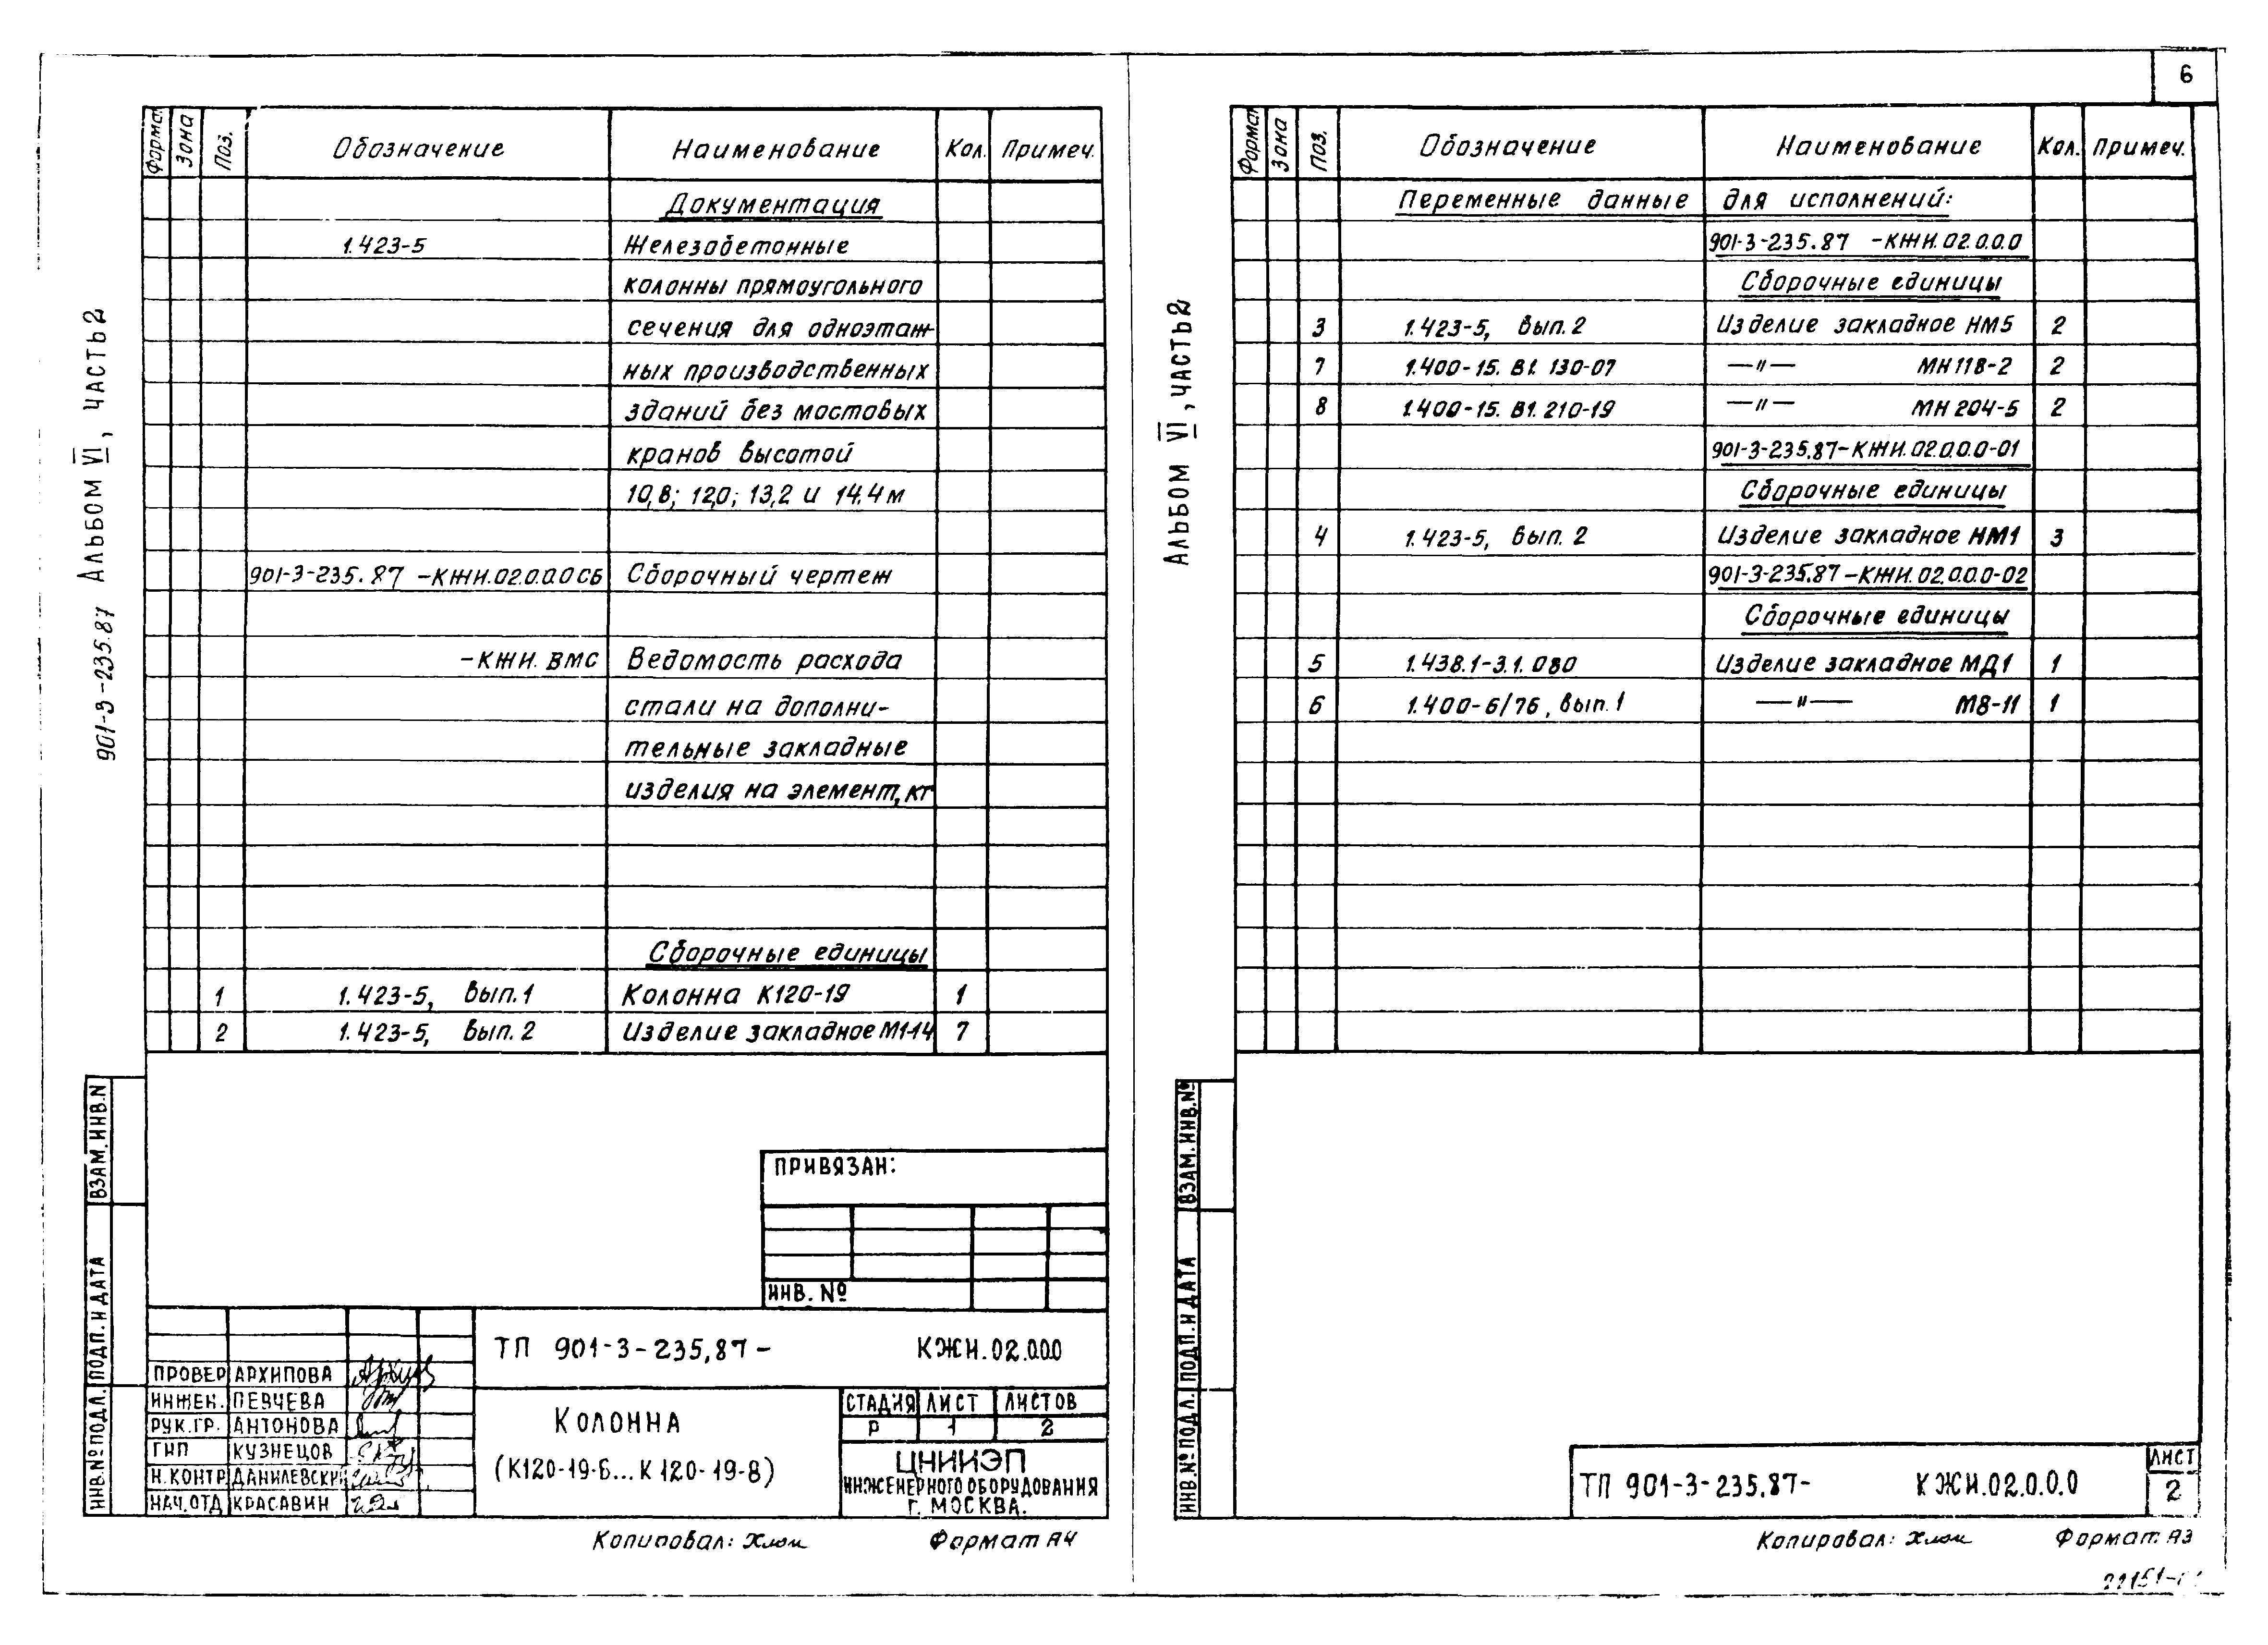 6
901-3-235.87 АЛЬБОМ VI, ЧАСТЬ 2
Формат Зона Поз. Обозначение Наименование Кол. Примеч.
Документация
1.423-5 Железобетонные
колонны прямоугольного
сечения для одноэтаж-
ных производственных
зданий без мостовых
кранов высотой
10,8; 12,0; 13,2 и 14.4 м
901-3-235.87 -КЖИ.02.0.0.0 СБ Сборочный чертеж
-КЖИ. ВМС Ведомость расхода
стали на дополни-
тельные закладные
изделия на элемент, кг
Сборочные единицы
1 1.423-5, Вып.1 Колонна К120-19 1
2 1.423-5, Вып. 2 Изделие закладное М1-14 7
ПРИВЯЗАН:
ИНВ. №
ВЗАМ.ИНВ.N
ПОДП. И ДАТА
ИНВ.№ПОДЛ.
ТП 901-3-235.87- КЖИ.02.0.0.0
ПРОВЕР АРХИПОВА
ИНЖЕН. ПЕВЧЕВА
РУК.ГР. АНТОНОВА
ГИП КУЗНЕЦОВ
Н.КОНТР ДАНИЛЕВСКИЙ
НАЧ.ОТД КРАСАВИН
КОЛОННА
(К120-19-6...К120-19-8)
СТАДИЯ ЛИСТ ЛИСТОВ
Р 1 2
ЦНИИЭП
ИНЖЕНЕРНОГО ОБОРУДОВАНИЯ
Г. МОСКВА.
Копировал: Формат А4
АЛЬБОМ VI, ЧАСТЬ 2
Формат Зона Поз. Обозначение Наименование Кол. Примеч.
Переменные данные для исполнений:
901-3-235.87 -КЖИ.02.0.0.0
Сборочные единицы
3 1.423-5, Вып. 2 Изделие закладное НМ5 2
7 1.400-15. В1. 130-07 —"— МН118-2 2
8 1.400-15. В1. 210-19 —"— МН 204-5 2
901-3-235.87-КЖИ.02.0.0.0-01
Сборочные единицы
4 1.423-5, Вып. 2 Изделие закладное НМ1 3
901-3-235.87-КЖИ.02.0.0.0-02
Сборочные единицы
5 1.438.1-3.1. 080 Изделие закладное МД1 1
6 1.400-6/76, Вып.1 —"— М8-11 1
ВЗАМ.ИНВ.№
ПОДП. И ДАТА
ИНВ.№ПОДЛ.
ТП 901-3-235.87- КЖИ.02.0.0.0
ЛИСТ
2
Копировал: Формат: А3